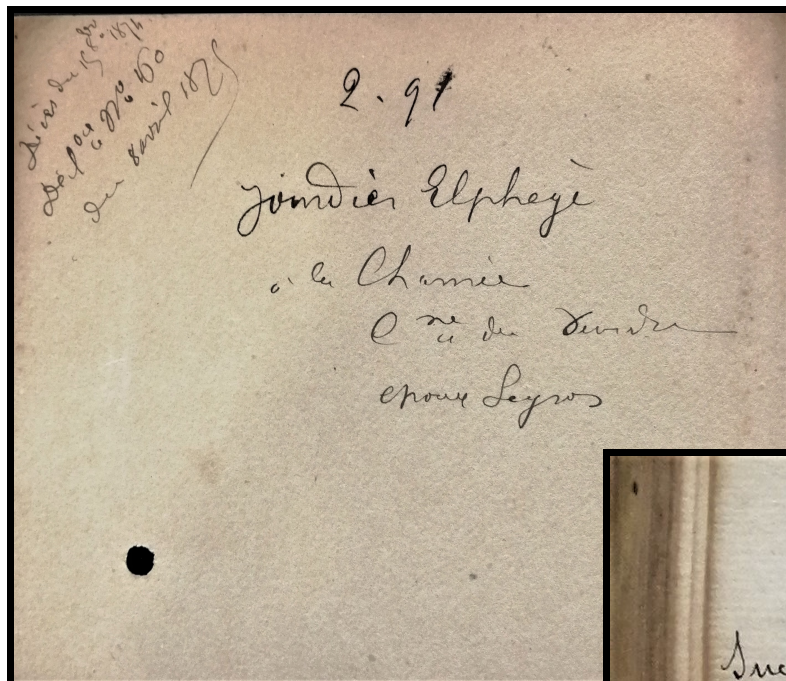 Décès du 15 8bre 1874
Décl on N° 40
du 8 avril 1875
2. 91
Jourdier Elphegè
à la Charnée
Cne de
epoux Legros
Suc